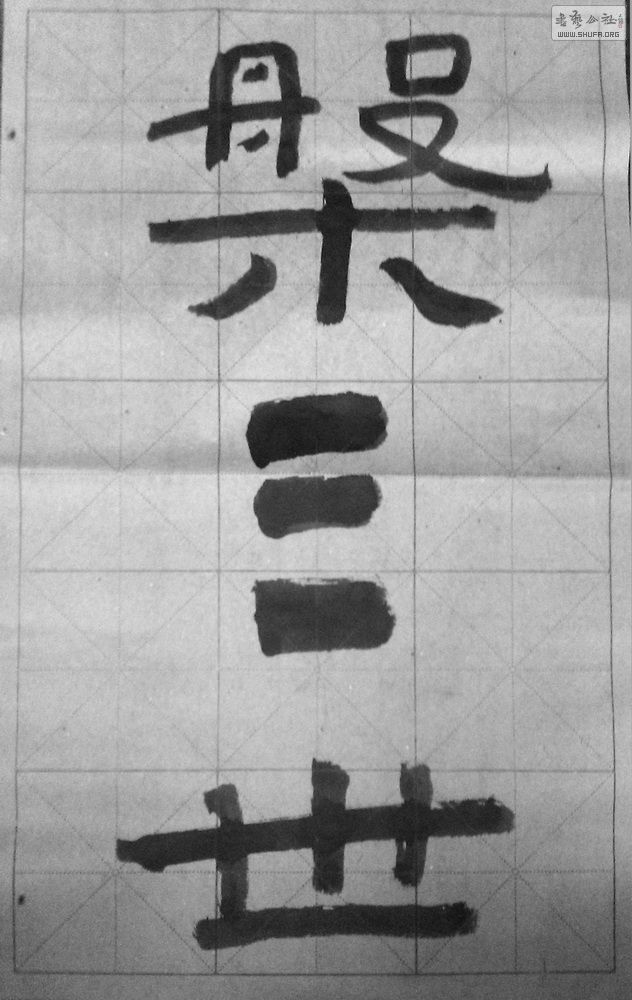 書藝公社
WWW.SHUFA.ORG
槃
三
世